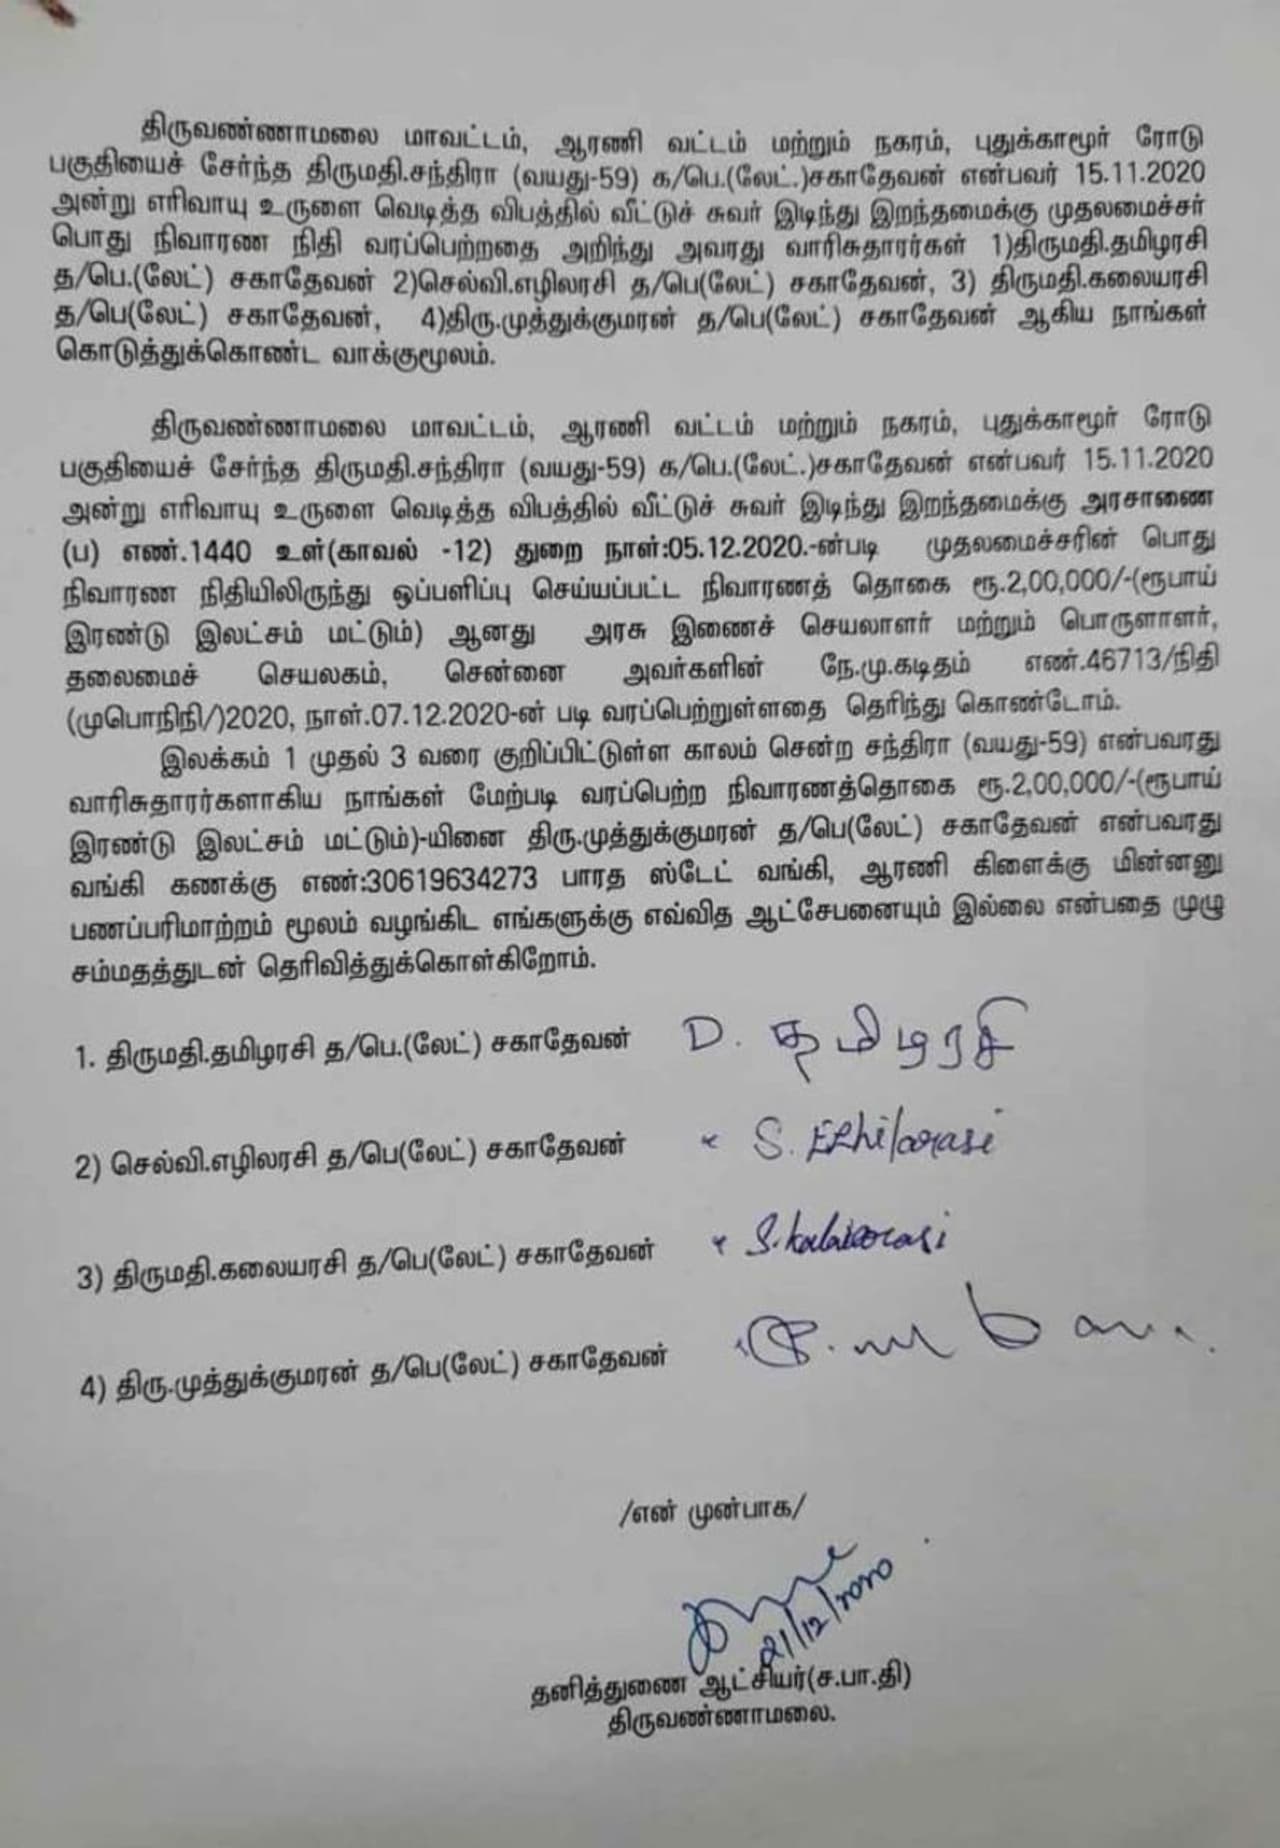 திருவண்ணாமலை மாவட்டம், ஆரணி வட்டம் மற்றும் நகரம், புதுக்காமூர் ரோடு
பகுதியைச் சேர்ந்த திருமதி.சந்திரா (வயது-59) க/பெ.(லேட்.)சகாதேவன் என்பவர் 15.11.2020
அன்று எரிவாயு உருளை வெடித்த விபத்தில் வீட்டுச் சுவர் இடிந்து இறந்தமைக்கு முதலமைச்சர்
பொது நிவாரண நிதி வரப்பெற்றதை அறிந்து அவரது வாரிசுதாரர்கள் 1)திருமதி.தமிழரசி
த/பெ.(லேட்) சகாதேவன் 2)செல்வி.எழிலரசி த/பெ(லேட்) சகாதேவன், 3) திருமதி.கலையரசி
த/பெ(லேட்) சகாதேவன், 4)திரு.முத்துக்குமரன் த/பெ(லேட்) சகாதேவன் ஆகிய நாங்கள்
கொடுத்துக்கொண்ட வாக்குமூலம்.
திருவண்ணாமலை மாவட்டம், ஆரணி வட்டம் மற்றும் நகரம், புதுக்காமூர் ரோடு
பகுதியைச் சேர்ந்த திருமதி.சந்திரா (வயது-59) க/பெ.(லேட்.)சகாதேவன் என்பவர் 15.11.2020
அன்று எரிவாயு உருளை வெடித்த விபத்தில் வீட்டுச் சுவர் இடிந்து இறந்தமைக்கு அரசாணை
(ப) எண்.1440 உள்(காவல் -12) துறை நாள்:05.12.2020.-ன்படி முதலமைச்சரின் பொது
நிவாரண நிதியிலிருந்து ஒப்பளிப்பு செய்யப்பட்ட நிவாரணத் தொகை ரூ.2,00,000/-(ரூபாய்
இரண்டு இலட்சம் மட்டும்) ஆனது அரசு இணைச் செயலாளர் மற்றும் பொருளாளர்,
தலைமைச் செயலகம், சென்னை அவர்களின் நே.மு.கடிதம் எண்.46713/நிதி
(முபொநிநி/)2020, நாள்.07.12.2020-ன் படி வரப்பெற்றுள்ளதை தெரிந்து கொண்டோம்.
இலக்கம் 1 முதல் 3 வரை குறிப்பிட்டுள்ள காலம் சென்ற சந்திரா (வயது-59) என்பவரது
வாரிசுதாரர்களாகிய நாங்கள் மேற்படி வரப்பெற்ற நிவாரணத்தொகை ரூ.2,00,000/-(ரூபாய்
இரண்டு இலட்சம் மட்டும்)-யினை திரு.முத்துக்குமரன் த/பெ(லேட்) சகாதேவன் என்பவரது
வங்கி கணக்கு எண்:30619634273 பாரத ஸ்டேட் வங்கி, ஆரணி கிளைக்கு மின்னனு
பணப்பரிமாற்றம் மூலம் வழங்கிட எங்களுக்கு எவ்வித ஆட்சேபனையும் இல்லை என்பதை முழு
சம்மதத்துடன் தெரிவித்துக்கொள்கிறோம்.
1. திருமதி.தமிழரசி த/பெ.(லேட்) சகாதேவன் D. தமிழரசி
2) செல்வி.எழிலரசி த/பெ(லேட்) சகாதேவன் S. Ezhilarasi
3) திருமதி.கலையரசி த/பெ(லேட்) சகாதேவன் S. kalaiarasi
4) திரு.முத்துக்குமரன் த/பெ(லேட்) சகாதேவன்
/என் முன்பாக/
21/12/2020
தனித்துணை ஆட்சியர்(ச.பா.தி)
திருவண்ணாமலை.